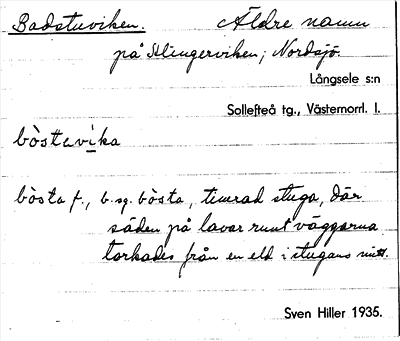 Badstuviken. Äldre namn
på Klingerviken; Nordsjö.
Långsele s:n
Sollefteå tg., Västernorrl. l.
bòstevi̲ka
bòsta f., b. sg. bòsta, timrad stuga, där
säden på lavar runt väggarna
torkades från en eld i stugans mitt.
Sven Hiller 1935.